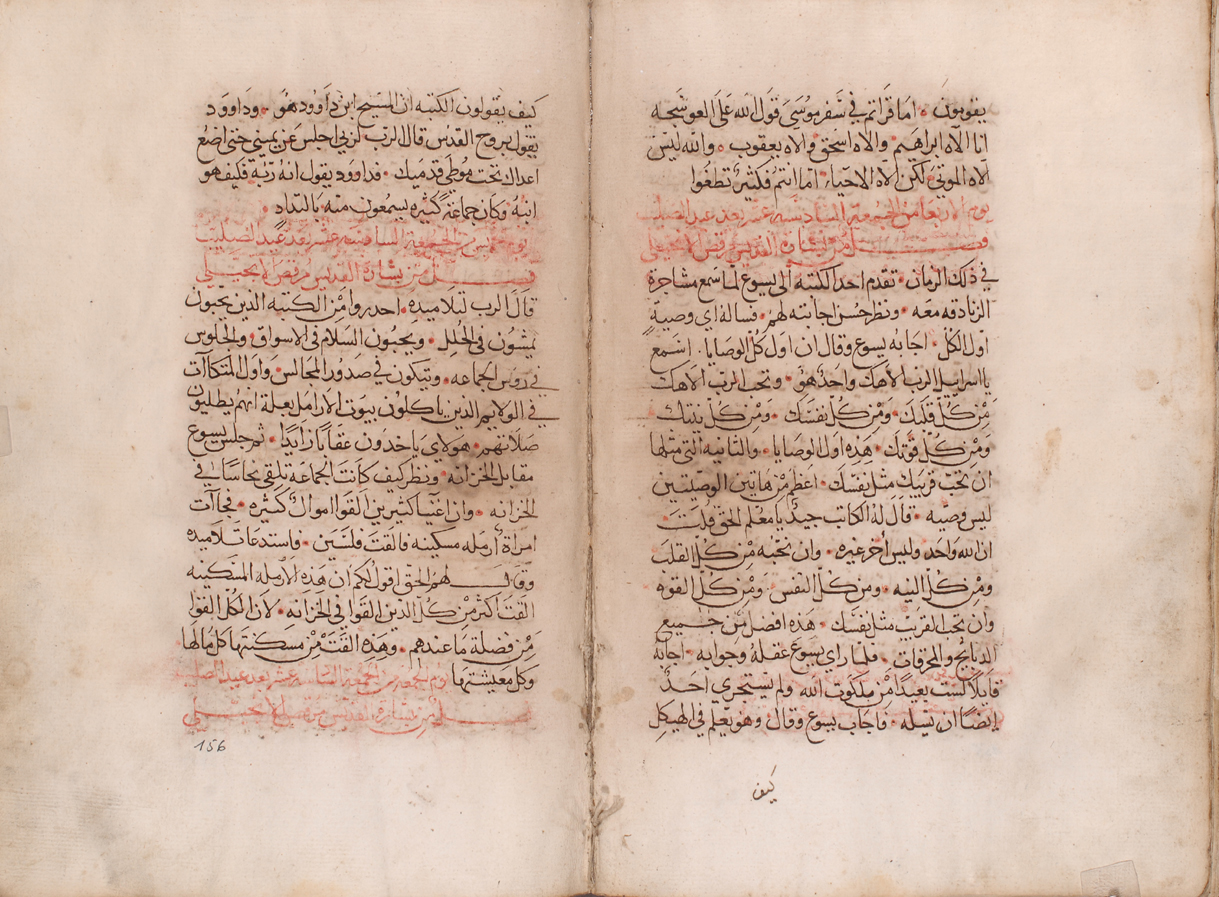 يقومون • اما قراتم في سفر موسى قول الله على العوسجه
انا الاه ابراهيم والاه اسحق والاه يعقوب • والله ليس
الاه الموتى لكن الاه الاحياء اما انتم فكثير تطغوا
يوم الاربعا من الجمعة السادسه عشر بعد عيد الصليب
فصل من بشارة القديس مرقص الانجيلي
في ذلك الزمان • تقدم احد الكتبه الى يسوع لما سمع مشاجرة
الزنادقه معه • ونظر حسن اجابته لهم • فساله اي وصية
اول الكل • اجابه يسوع وقال ان اول كل الوصايا • اسمع
يا اسراييل الرب الاهك واحد هو • وتحب الرب الاهك
من كل قلبك • ومن كل نفسك • ومن كل نيتك
ومن كل قوتك • هذه اول الوصايا • والثانيه التي مثلها
ان تحب قريبك مثل نفسك • اعظم من هاتين الوصيتين
ليس وصيه • قال له الكاتب جيدًا يا معلم الحق قلت
ان الله واحد وليس اخر غيره • وان تحبه من كل القلب
ومن كل النيه • ومن كل النفس ومن كل القوه
وان تحب القريب مثل نفسك • هذه افضل من جميع
الدبايح والمحرقات • فلما راي يسوع عقله وجوابه • اجابه
قايلا لست بعيدًا من ملكوت الله ولم يستجري احد
ايضًا ان يسله • فاجاب يسوع وقال وهو يعلم في الهيكل
كيف
كيف يقولون الكتبه ان المسيح ابن داوود هو • وداوود
يقول بروح القدس قال الرب لربي اجلس عن يميني حتى اضع
اعداك تحت موطي قدميك • فداوود يقول انه ربه فكيف هو
ابنه وكان جماعة كثيره يسمعون منه بالتداد •
يوم خميس من الجمعة السادسه عشر بعد عيد الصليب
فصل من بشارة القديس مرقص الانجيلي
قال الرب لتلاميده • احدروا من الكتبه الذين يحبون
يمشون في الحلل • ويحبون السلام في الاسواق • والجلوس
في روس الجماعه • ويتكون في صدور المجالس واول المتكاات
في الولايم الذين ياكلون بيوت الارامل بعلة انهم يطيلون
صلاتهم • هولاي ياخدون عقابًا زايدًا • ثم جلس يسوع
مقابل الخزانه • ونظر كيف كانت الجماعة تلقي نحاسًا في
الخزانه • وان اغنيا كثيرين القوا اموال كثيره • فجاات
امراة ارمله مسكينه فالقت فلسين • فاستدعا تلاميده
وقال لهم الحق اقول لكم ان هذه الارمله المسكينه
القت اكثر من كل الذين القوا في الخزانه • لان الكل القوا
من فضلة ما عندهم • وهذه القت من مسكنتها كل مالها
وكل معيشتها يوم الجمعه من الجمعة السادسه عشر بعد عيد الصليب
فصل من بشارة القديس مرقص الانجيلي
156